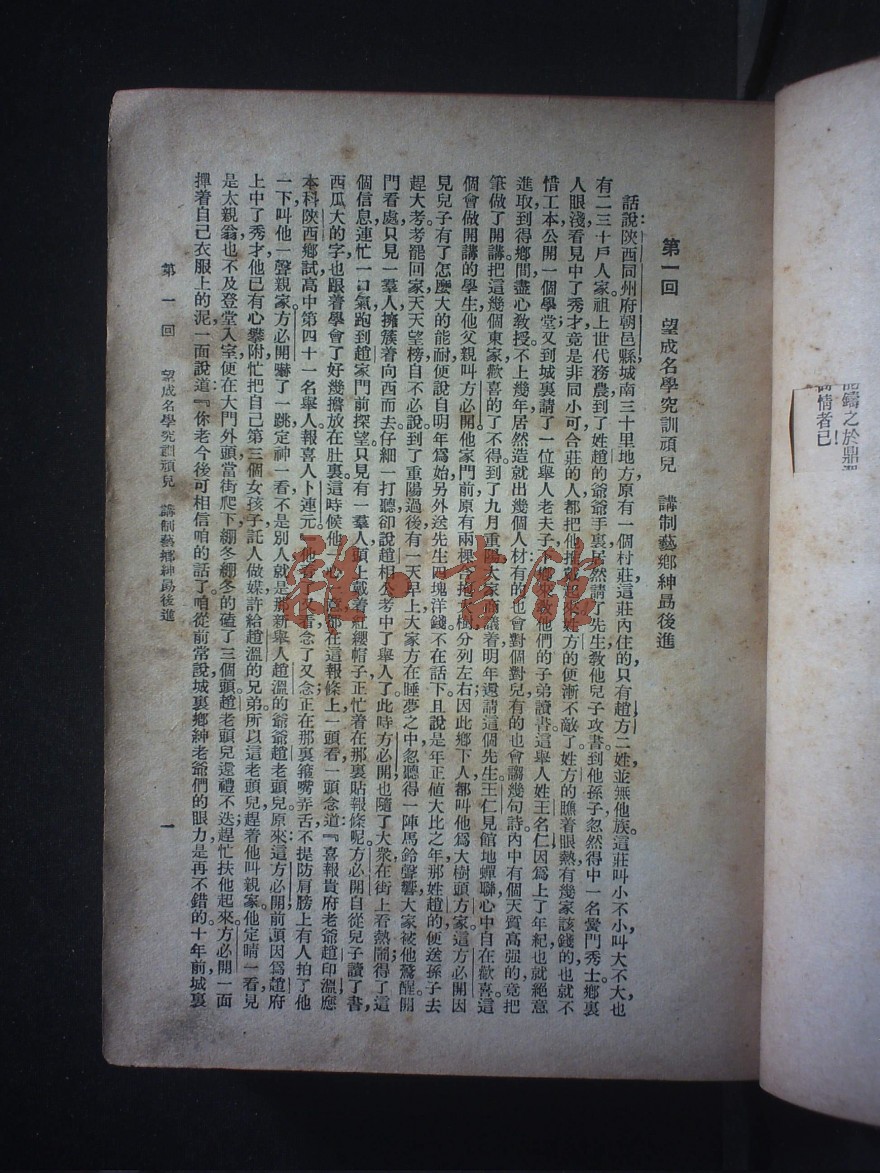 第一回　望成名學究訓頑兒　講制藝鄉紳勗後進
話說陝西同州府朝邑縣城南三十里地方，原有一個村莊。這莊內住的只有趙方二姓，並無他族。這莊叫小不小，叫大不大，也
有二三十戶人家。祖上世代務農。到了姓趙的爺爺手裏，居然請了先生，敎他兒子攻書；到他孫子，忽然得中一名黌門秀士。鄉裏
人眼淺，看見中了秀才，竟是非同小可，合莊的人，都把他推戴起來，姓方的便漸不敵了。姓方的瞧着眼熱，有幾家該錢的，也就不
惜工本，公開一個學堂；又到城裏請了一位舉人老夫子，下鄉來敎他們的子弟讀書。這舉人姓王名仁，因爲上了年紀，也就絕意
進取，到得鄉間，盡心敎授。不上幾年，居然造就出幾個人材：有的也會對個對兒，有的也會謅幾句詩，內中有個天質高强的，竟把
筆做了開講。把這幾個東家歡喜的了不得。到了九月重陽，大家商議着，明年還請這個先生。王仁見館地蟬聯，心中自在歡喜。這
個會做開講的學生，他父親叫方必開。他家門前，原有兩棵合抱大樹，分列左右，因此鄉下人都叫他爲大樹頭方家。這方必開因
見兒子有了怎麼大的能耐，便說自明年爲始，另外送先生四塊洋錢。不在話下。且說是年正値大比之年，那姓趙的便送孫子去
趕大考。考罷回家，天天望榜，自不必說。到了重陽過後，有一天早上，大家方在睡夢之中，忽聽得一陣馬鈴聲響，大家被他驚醒。開
門看處，只見一羣人，擁簇着向西而去。仔細一打聽，卻說趙相公考中了舉人了。此時方必開也隨了大衆在街上看熱鬧，得了這
個信息，連忙一口氣跑到趙家門前探望。只見有一羣人，頭上戴着紅纓帽子，正忙着在那裏貼報條呢。方必開自從兒子讀了書，
西瓜大的字，也跟着學會了好幾擔，放在肚裏。這時候他一心一意都在這報條上，一頭看，一頭念道：『喜報貴府老爺趙印溫，應
本科陝西鄉試，高中第四十一名舉人。報喜人卜連元。』他看了又看，念了又念，正在那裏獈嘴弄舌，不提防肩膀上有人拍了他
一下，叫他一聲親家。方必開嚇了一跳，定神一看，不是別人，就是那新舉人趙溫的爺爺趙老頭兒。原來這方必開，前頭因爲趙府
上中了秀才，他已有心攀附，忙把自己第三個女孩子，託人做媒，許給趙溫的兄弟，所以這老頭兒趕着他叫親家。他定睛一看，見
是太親翁，也不及登堂入室，便在大門外頭，當街爬下，綳冬綳冬的磕了三個頭。趙老頭兒還禮不迭，趕忙扶他起來。方必開一面
撣着自己衣服上的泥，一面說道：『你老今後可相信咱的話了。咱從前常說，城裏鄉紳老爺們的眼力，是再不錯的。十年前，城裏
第一回　望成名學究訓頑兒　講制藝鄉紳勗後進　一
情者已
雜·書館